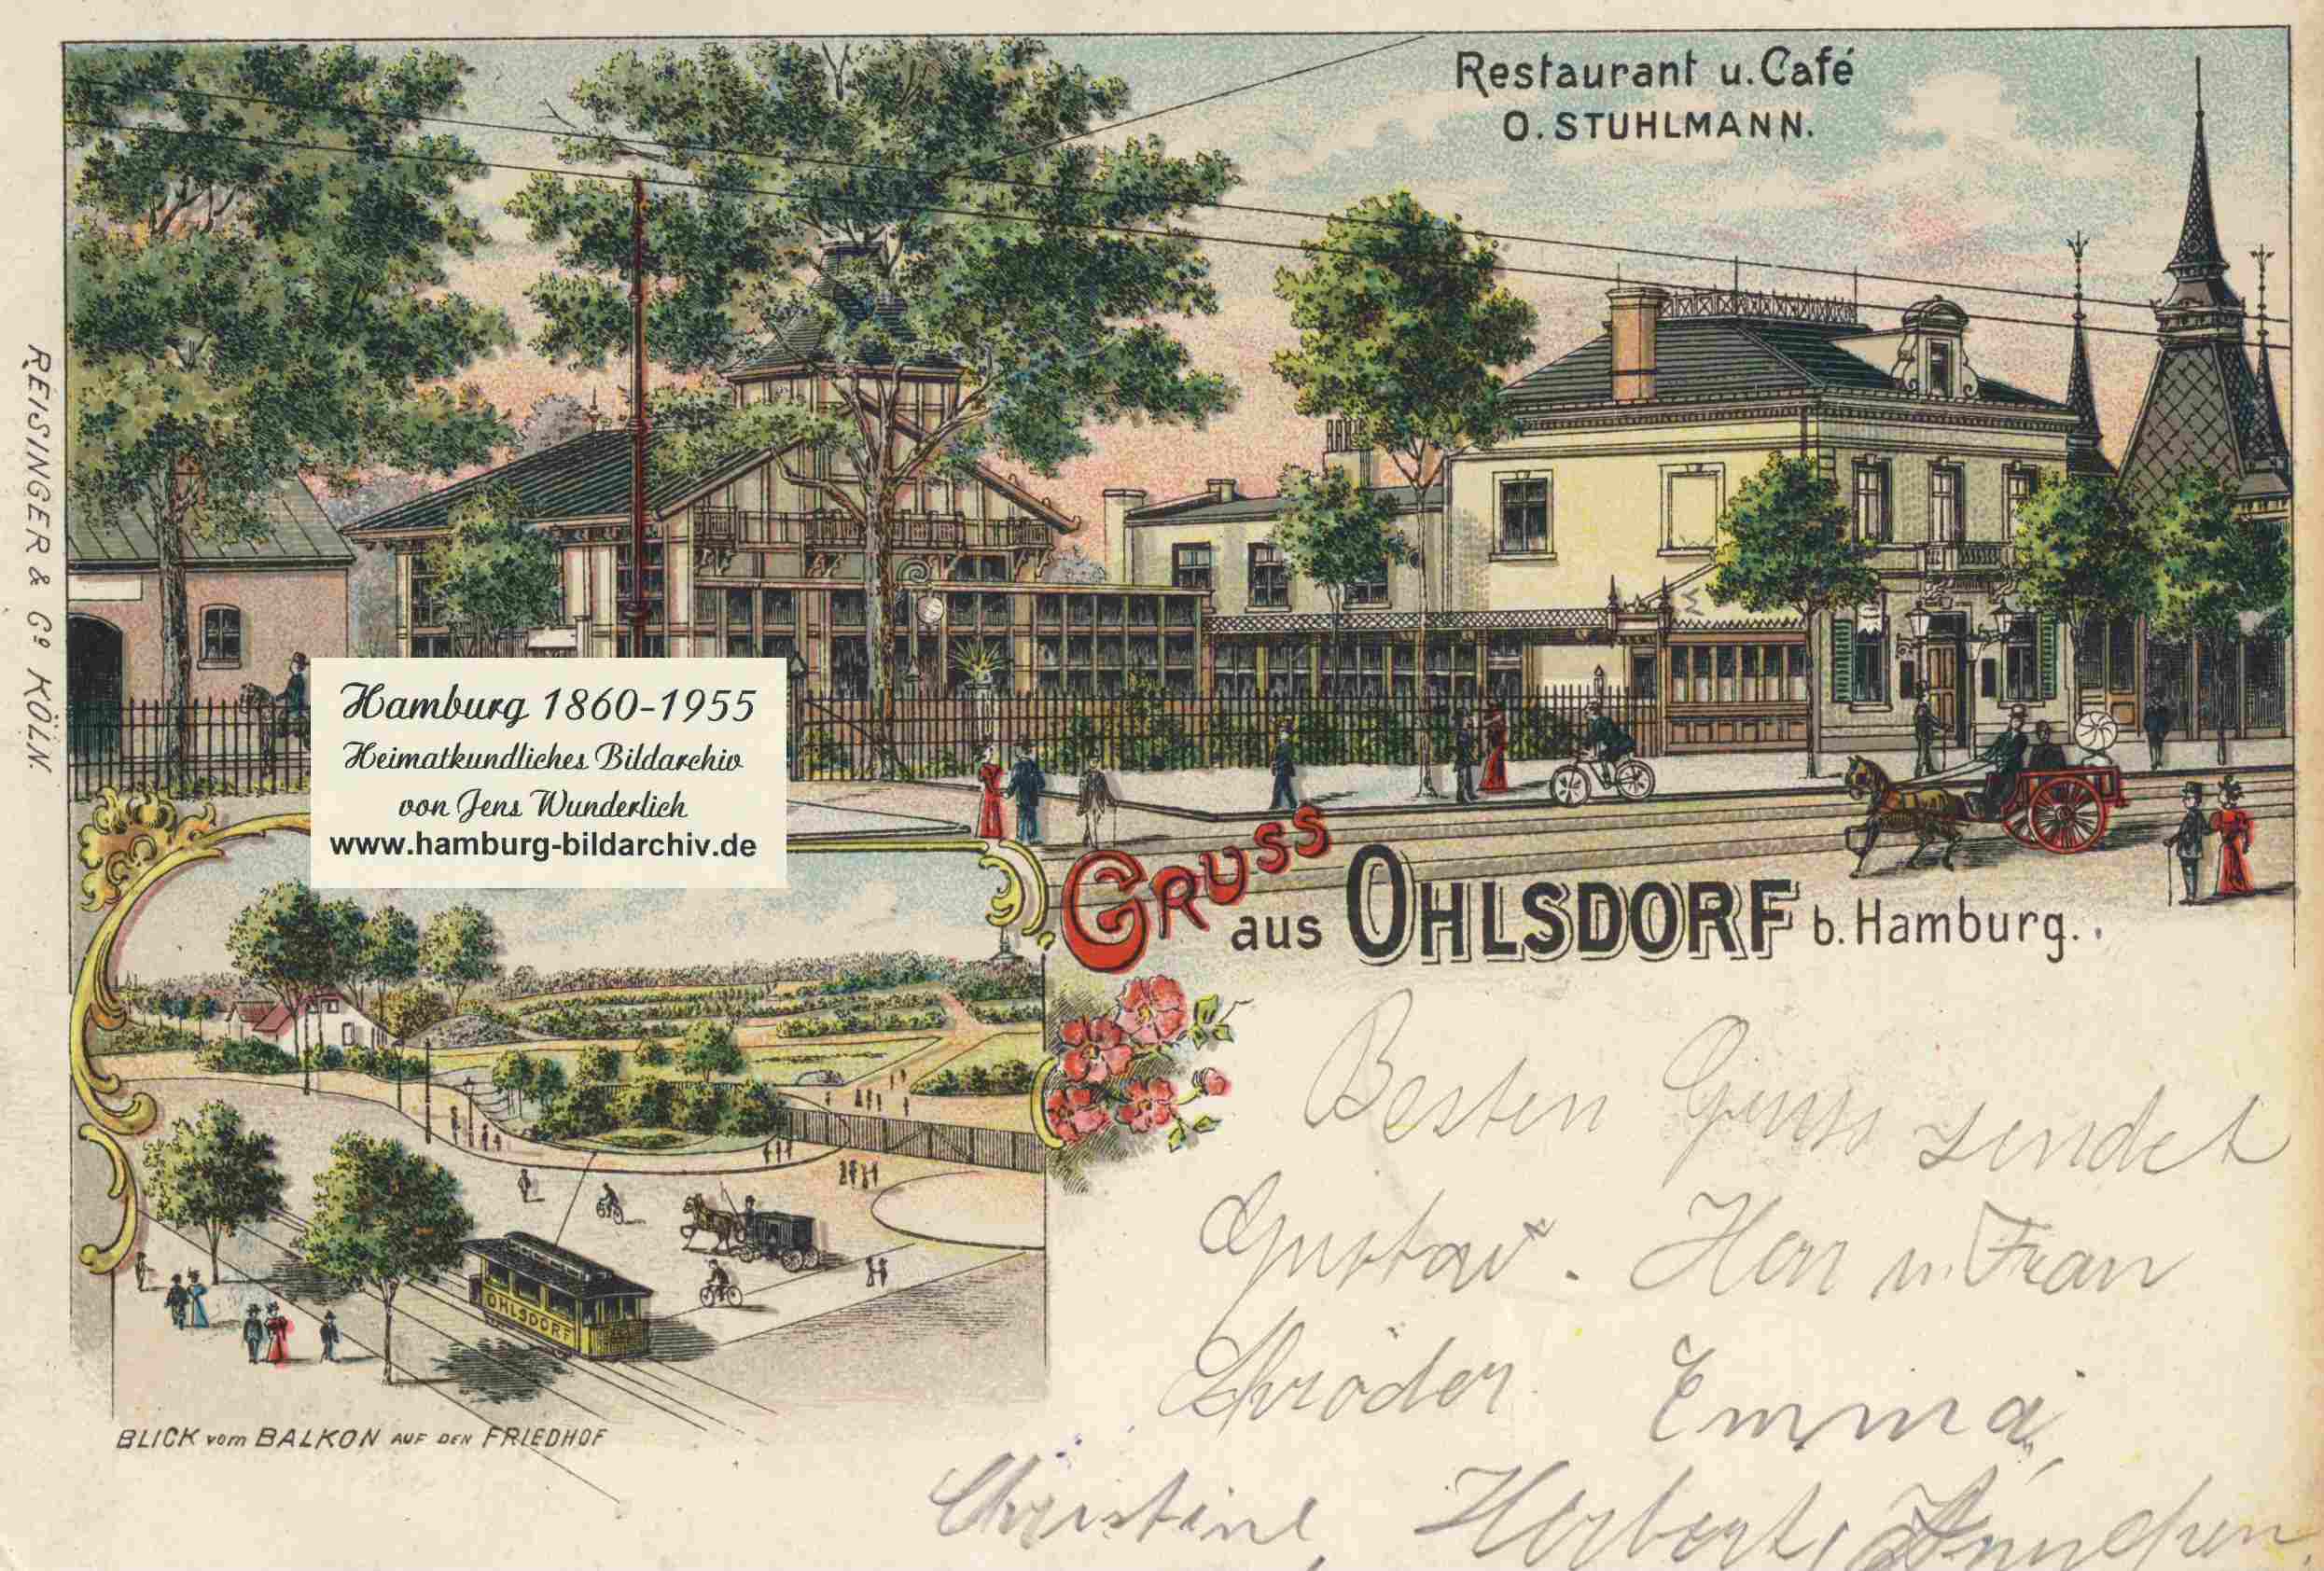 Restaurant u. Café
O. STUHLMANN.
REISINGER & Co KÖLN.
Hamburg 1860-1955
Heimatkundliches Bildarchiv
von Jens Wunderlich
www.hamburg-bildarchiv.de
GRUSS
aus OHLSDORF b. Hamburg.
OHLSDORF
BLICK vom BALKON AUF DEN FRIEDHOF
Besten Gruss sendet
Gustav. Herr u. Frau
Schröder Emma,
Christine, Herbert,